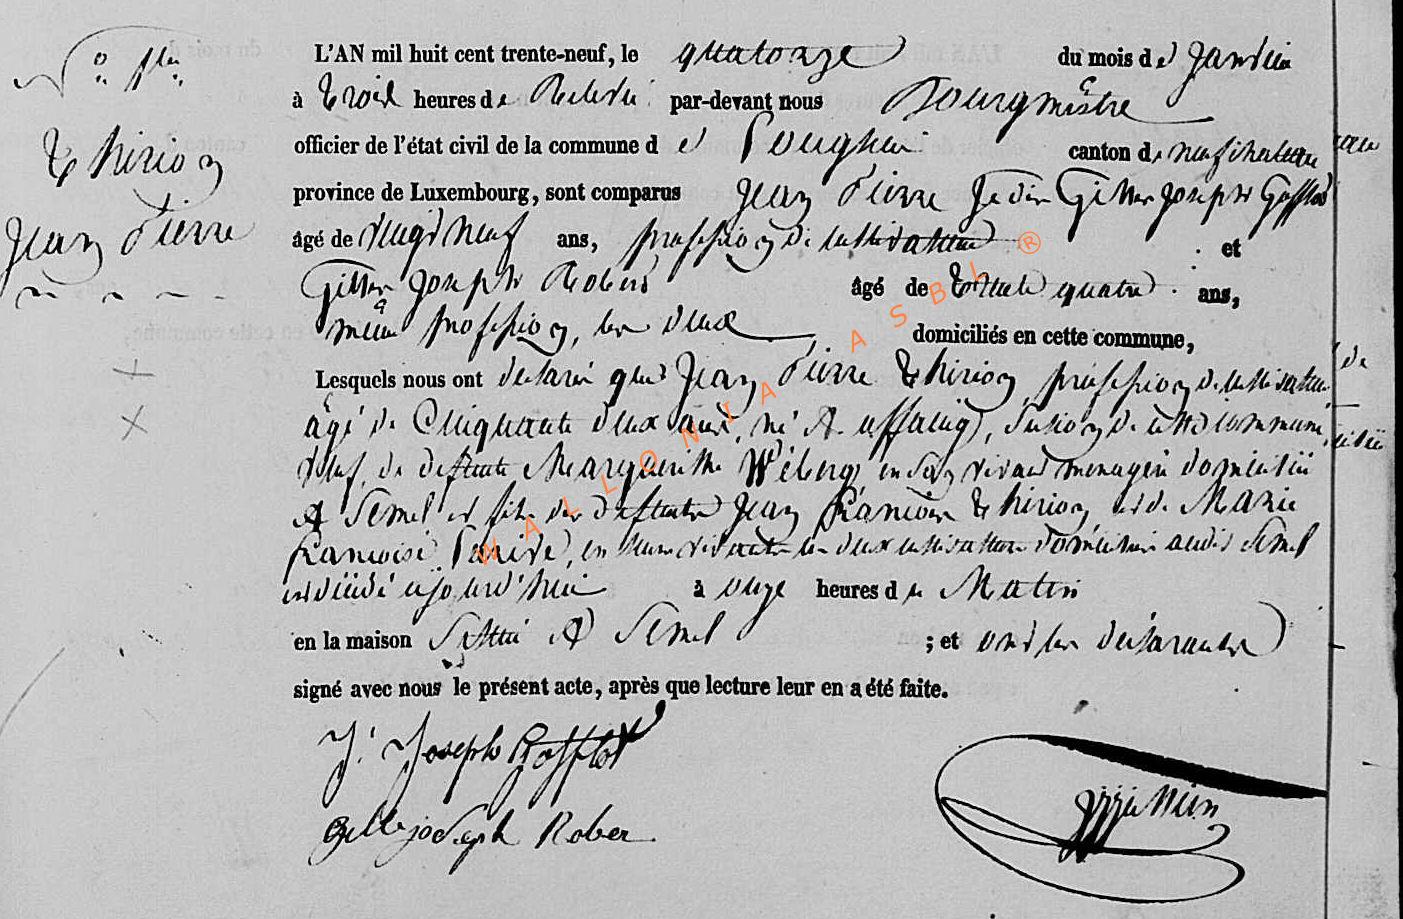 N° 1er
Thirion
Jean Pierre
L'AN mil huit cent trente-neuf, le quatorze du mois de Janvier
à trois heures de Relevée par-devant nous Bourgmêstre
officier de l'état civil de la commune de canton de neufchateau
province de Luxembourg, sont comparus Jean Pierre Gilles Joseph Gofflot
âgé de vingt neuf ans, profession de cultivateur et
Gilles Joseph Robert âgé de trente quatre ans,
même profession, les deux domiciliés en cette commune,
Lesquels nous ont declaré que Jean Pierre Thirion, profession de cultivateur
âgé de Cinquante deux ans, né A uffaing, section de cette commune,
veuf de defunte Marguerithe en son vivant menagere domiciliée
A Semel et fils des defunts Jean François Thirion et de Marie
françoise en leur vivant les deux cultivateurs domiciliés audit Semel
est décédé aujourd'huie à onze heures du Matin
en la maison Sittuée A Semel ; et ont les declarants
signé avec nous le présent acte, après que lecture leur en a été faite.
J. Joseph Gofflot
Gille joseph Rober
WALLONIA ASBL ®